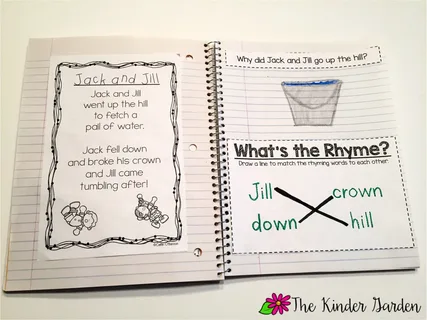 Jack and Jill
Jack and Jill
went up the hill
to fetch a
pail of water.
Jack fell down
and broke his crown
and Jill came
tumbling after!
Why did Jack and Jill go up the hill?
What's the Rhyme?
Draw a line to match the rhyming words to each other.
Jill crown
down hill
The Kinder Garden